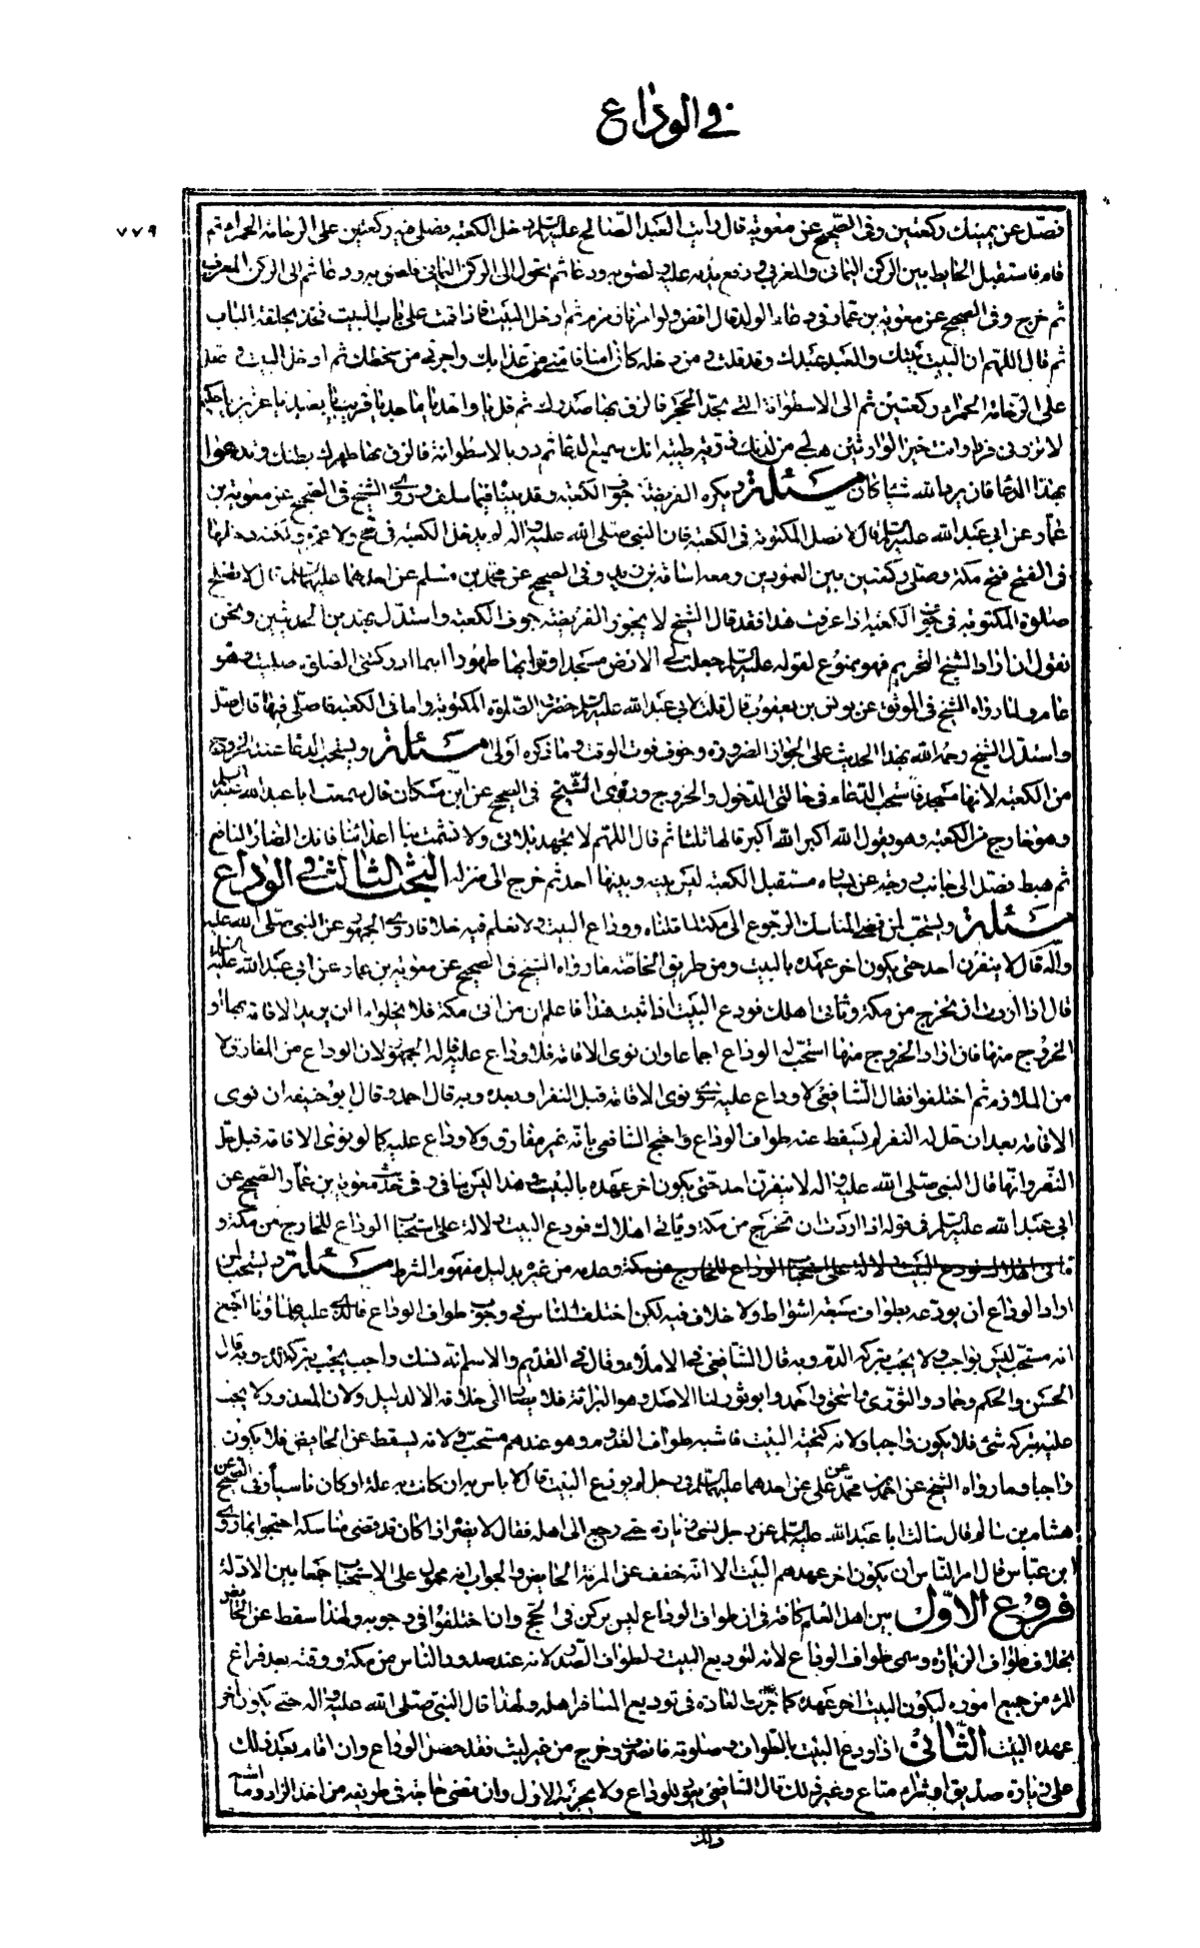 في الوداع
٧٧٩
فصل عن يمينك ركعتين وفى الصحيح عن معوية قال رأيت العبد الصالح عليه السلم دخل الكعبة فصلى فيه ركعتين على الرخامة الحمراء ثم
قام فاستقبل الحايط بين الركن اليمانى والغربى ورفع يديه عليه ولصق به ودعا ثم تحول الى الركن اليمانى فلصق به ودعا ثم الى الركن الغربى
ثم خرج وفى الصحيح عن معوية بن عمار فى دعاء الولد قال افض دلوا من زمزم ثم ادخل البيت فاذا قمت على باب البيت فخذ بحلقة الباب
ثم قال اللهم ان البيت بيتك والعبد عبدك وقد قلت ومن دخله كان امنا فامنى من عذابك واجرنى من سخطك ثم ادخل البيت فصل
على الرخامة الحمراء ركعتين ثم الى الاسطوانة التى بحذاء الحجر فالزق بها صدرك ثم قل يا واحد يا ماجد يا قريب يا بعيد يا عزيز يا حكيم
لا تذرنى فردا وانت خير الوارثين هب لى من لدنك ذرية طيبة انك سميع الدعا ثم در بالاسطوانة فالزق بها ظهرك وبطنك وتدعوا
بهذا الدعا فان يرد الله شيئا كان مسئلة ويكره الفريضة جوف الكعبة وقد بيناه فيما سلف وروى الشيخ فى الصحيح عن معوية بن
عمار عن ابى عبد الله عليه السلم قال لا تصل المكتوبة فى الكعبة فان النبى صلى الله عليه واله لم يدخل الكعبة فى حج ولا عمرة ولكنه دخلها
فى الفتح فتح مكة وصلى ركعتين بين العمودين ومعه اسامة بن زيد وفى الصحيح عن محمد بن مسلم عن احدهما عليهما السلم قال لا تصلح
صلوة المكتوبة فى جوف الكعبة اذا عرفت هذا فقد قال الشيخ لا يجوز الفريضة جوف الكعبة واستدل بهذين الحديثين ونحن
نقول ان اراد الشيخ التحريم فهو ممنوع لقوله عليه السلم جعلت لى الارض مسجدا وترابها طهورا اينما ادركتنى الصلوة صليت وهو
عام ولما رواه الشيخ فى الموثق عن يونس بن يعقوب قال قلت لابى عبد الله عليه السلم حضرت الصلوة المكتوبة وانا فى الكعبة فاصلى فيها قال صل
واستدل الشيخ رحمه الله بهذا الحديث على الجواز الضرورة وخوف فوت الوقت وما ذكره اولى مسئلة ويستحب الدعا عند الخروج
من الكعبة لانها مسجد فاستحب الدعاء فى حالتى الدخول والخروج وروى الشيخ فى الصحيح عن ابن مسكان قال سمعت ابا عبد الله عليه السلم
وهو خارج من الكعبة وهو يقول الله اكبر الله اكبر قالها ثلثا ثم قال اللهم لا تجهد بلاءنا ولا تشمت بنا اعدائنا فانك الضار النافع
ثم هبط فصلى الى جانب درجة عن يساره مستقبل الكعبة ليس بينه وبينها احد ثم خرج الى منزله البحث الثالث فى الوداع
مسئلة ويستحب لمن قضى المناسك الرجوع الى مكة لما قلناه ووداع البيت ولا نعلم فيه خلافا روى الجمهور عن النبى صلى الله عليه
واله قال لا ينفرن احد حتى يكون اخر عهده بالبيت ومن طريق الخاصة ما رواه الشيخ فى الصحيح عن معوية بن عمار عن ابى عبد الله عليه السلم
قال اذا اردت ان تخرج من مكة وتاتى اهلك فودع البيت اذا ثبت هذا فاعلم ان من اتى مكة فلا يخلوا اما ان يريد الاقامة بها او
الخروج منها فان اراد الخروج منها استحب له الوداع اجماعا وان نوى الاقامة فلا وداع عليه قاله الجمهور لان الوداع من المفارق لا
من الملازم ثم اختلفوا فقال الشافعى لا وداع عليه سواء نوى الاقامة قبل النفر او بعده وبه قال احمد وقال ابو حنيفة ان نوى
الاقامة بعد ان حل له النفر لم يسقط عنه طواف الوداع واحتج الشافعى بانه غير مفارق ولا وداع عليه كما لو نوى الاقامة قبل حل
النفر وانما قال النبى صلى الله عليه واله لا ينفرن احد حتى يكون اخر عهده بالبيت وهذا ليس بنافر وفى حديث معوية بن عمار الصحيح عن
ابى عبد الله عليه السلم فى قوله اذا اردت ان تخرج من مكة وتاتى اهلك فودع البيت دلالة على استحباب الوداع للخارج من مكة و
تاتى اهلك فودع البيت دلالة على استحباب الوداع للخارج من مكة وعدمه من غيره بدليل مفهوم الشرط مسئلة ويستحب لمن
اراد الوداع ان يودعه بطواف سبعة اشواط ولا خلاف فيه لكن اختلف الناس فى وجوب طواف الوداع فالذى عليه علماؤنا اجمع
انه مستحب ليس بواجب ولا يجب بتركه الدم وبه قال الشافعى فى الاملاء وقال فى القديم والام انه نسك واجب يجب بتركه الدم وبه قال
الحسن والحكم وحماد والثورى واسحق واحمد وابو ثور لنا الاصل وهو البراءة فلا يصار الى خلافه الا لدليل ولان المعذور لا يجب
عليه بتركه شئ فلا يكون واجبا ولانه كتحية البيت فاشبه طواف القدوم وهو عندهم مستحب ولانه يسقط عن الحايض فلا يكون
واجبا وما رواه الشيخ عن احمد بن محمد عن على عن احدهما عليهما السلم فى رجل لم يودع البيت قال لا باس به ان كانت به علة او كان ناسيا وفى الصحيح عن
هشام بن سالم قال سالت ابا عبد الله عليه السلم عن رجل نسى زيارة حتى رجع الى اهله فقال لا يضره اذا كان قد قضى مناسكه احتجوا بما روى
ابن عباس قال امر الناس ان يكون اخر عهدهم البيت الا انه خفف عن المرئة الحايض والجواب انه محمول على الاستحباب جمعا بين الادلة
فروع الاول بين اهل العلم كافة فى ان طواف الوداع ليس بركن فى الحج وان اختلفوا فى وجوبه ولهذا سقط عن الحايض
بخلاف طواف الزيارة وسمى طواف الوداع لانه لتوديع البيت وطواف الصدر لانه عند صدور الناس من مكة ووقته بعد فراغ
المرء من جميع اموره ليكون البيت اخر عهده كما جرت العادة فى توديع المسافر اهله ولهذا قال النبى صلى الله عليه واله حتى يكون اخر
عهده البيت الثانى اذا ودع البيت بالطواف وصلوته فانصرف وخرج من غير لبث فقد حصل الوداع وان اقام بعد ذلك
على زيارة صديق او شراء متاع وغير ذلك قال الشافعى يعيد الوداع ولا يجزئه الاول وان قضى حاجته فى طريقه من اخذ الزاد وما اشبه
ذلك